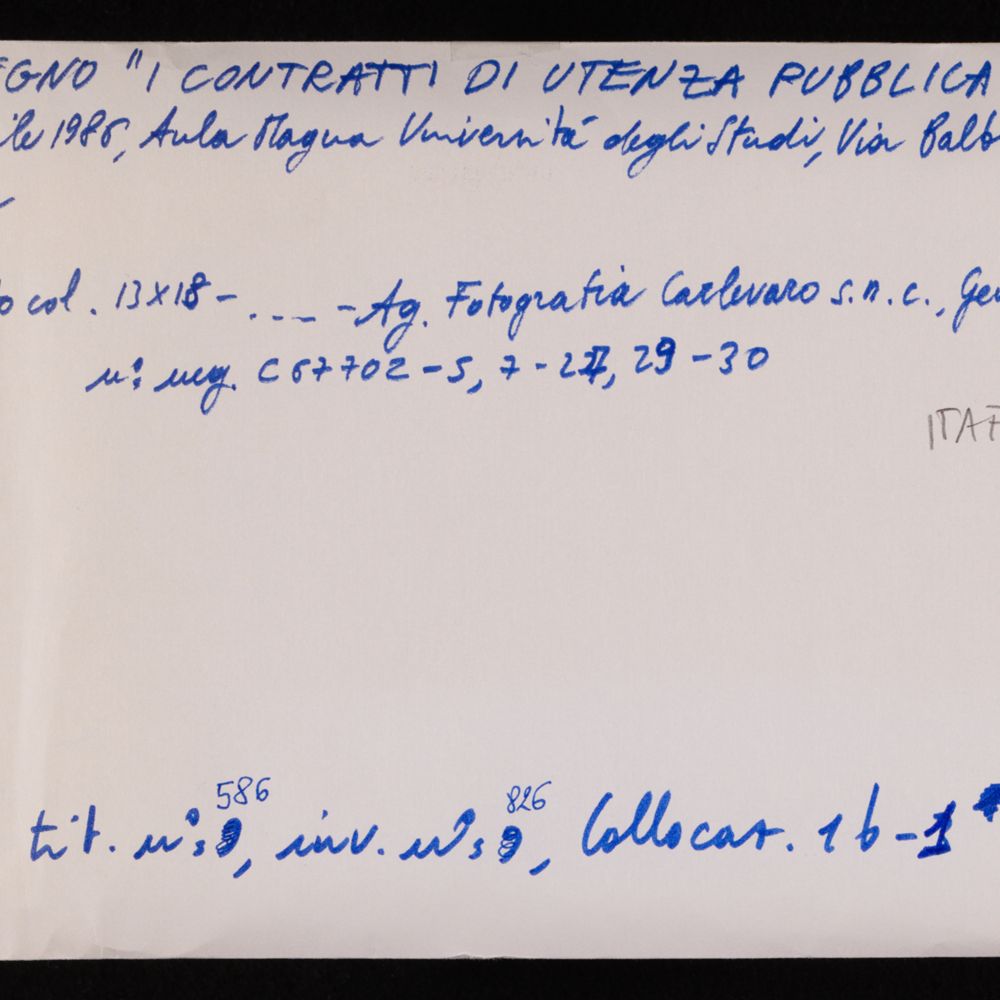 EGNO "I CONTRATTI DI UTENZA PUBBLICA
ile 1986, Aula Magna Università degli Studi, Via Balb
o col. 13x18 - .... - Ag. Fotografia Carlevaro s.n.c., Gen
n°: neg. C67702-5, 7-27, 29-30
ITAF
586 826
tit. n°: , inv. n°: , Collocaz. 1b-1